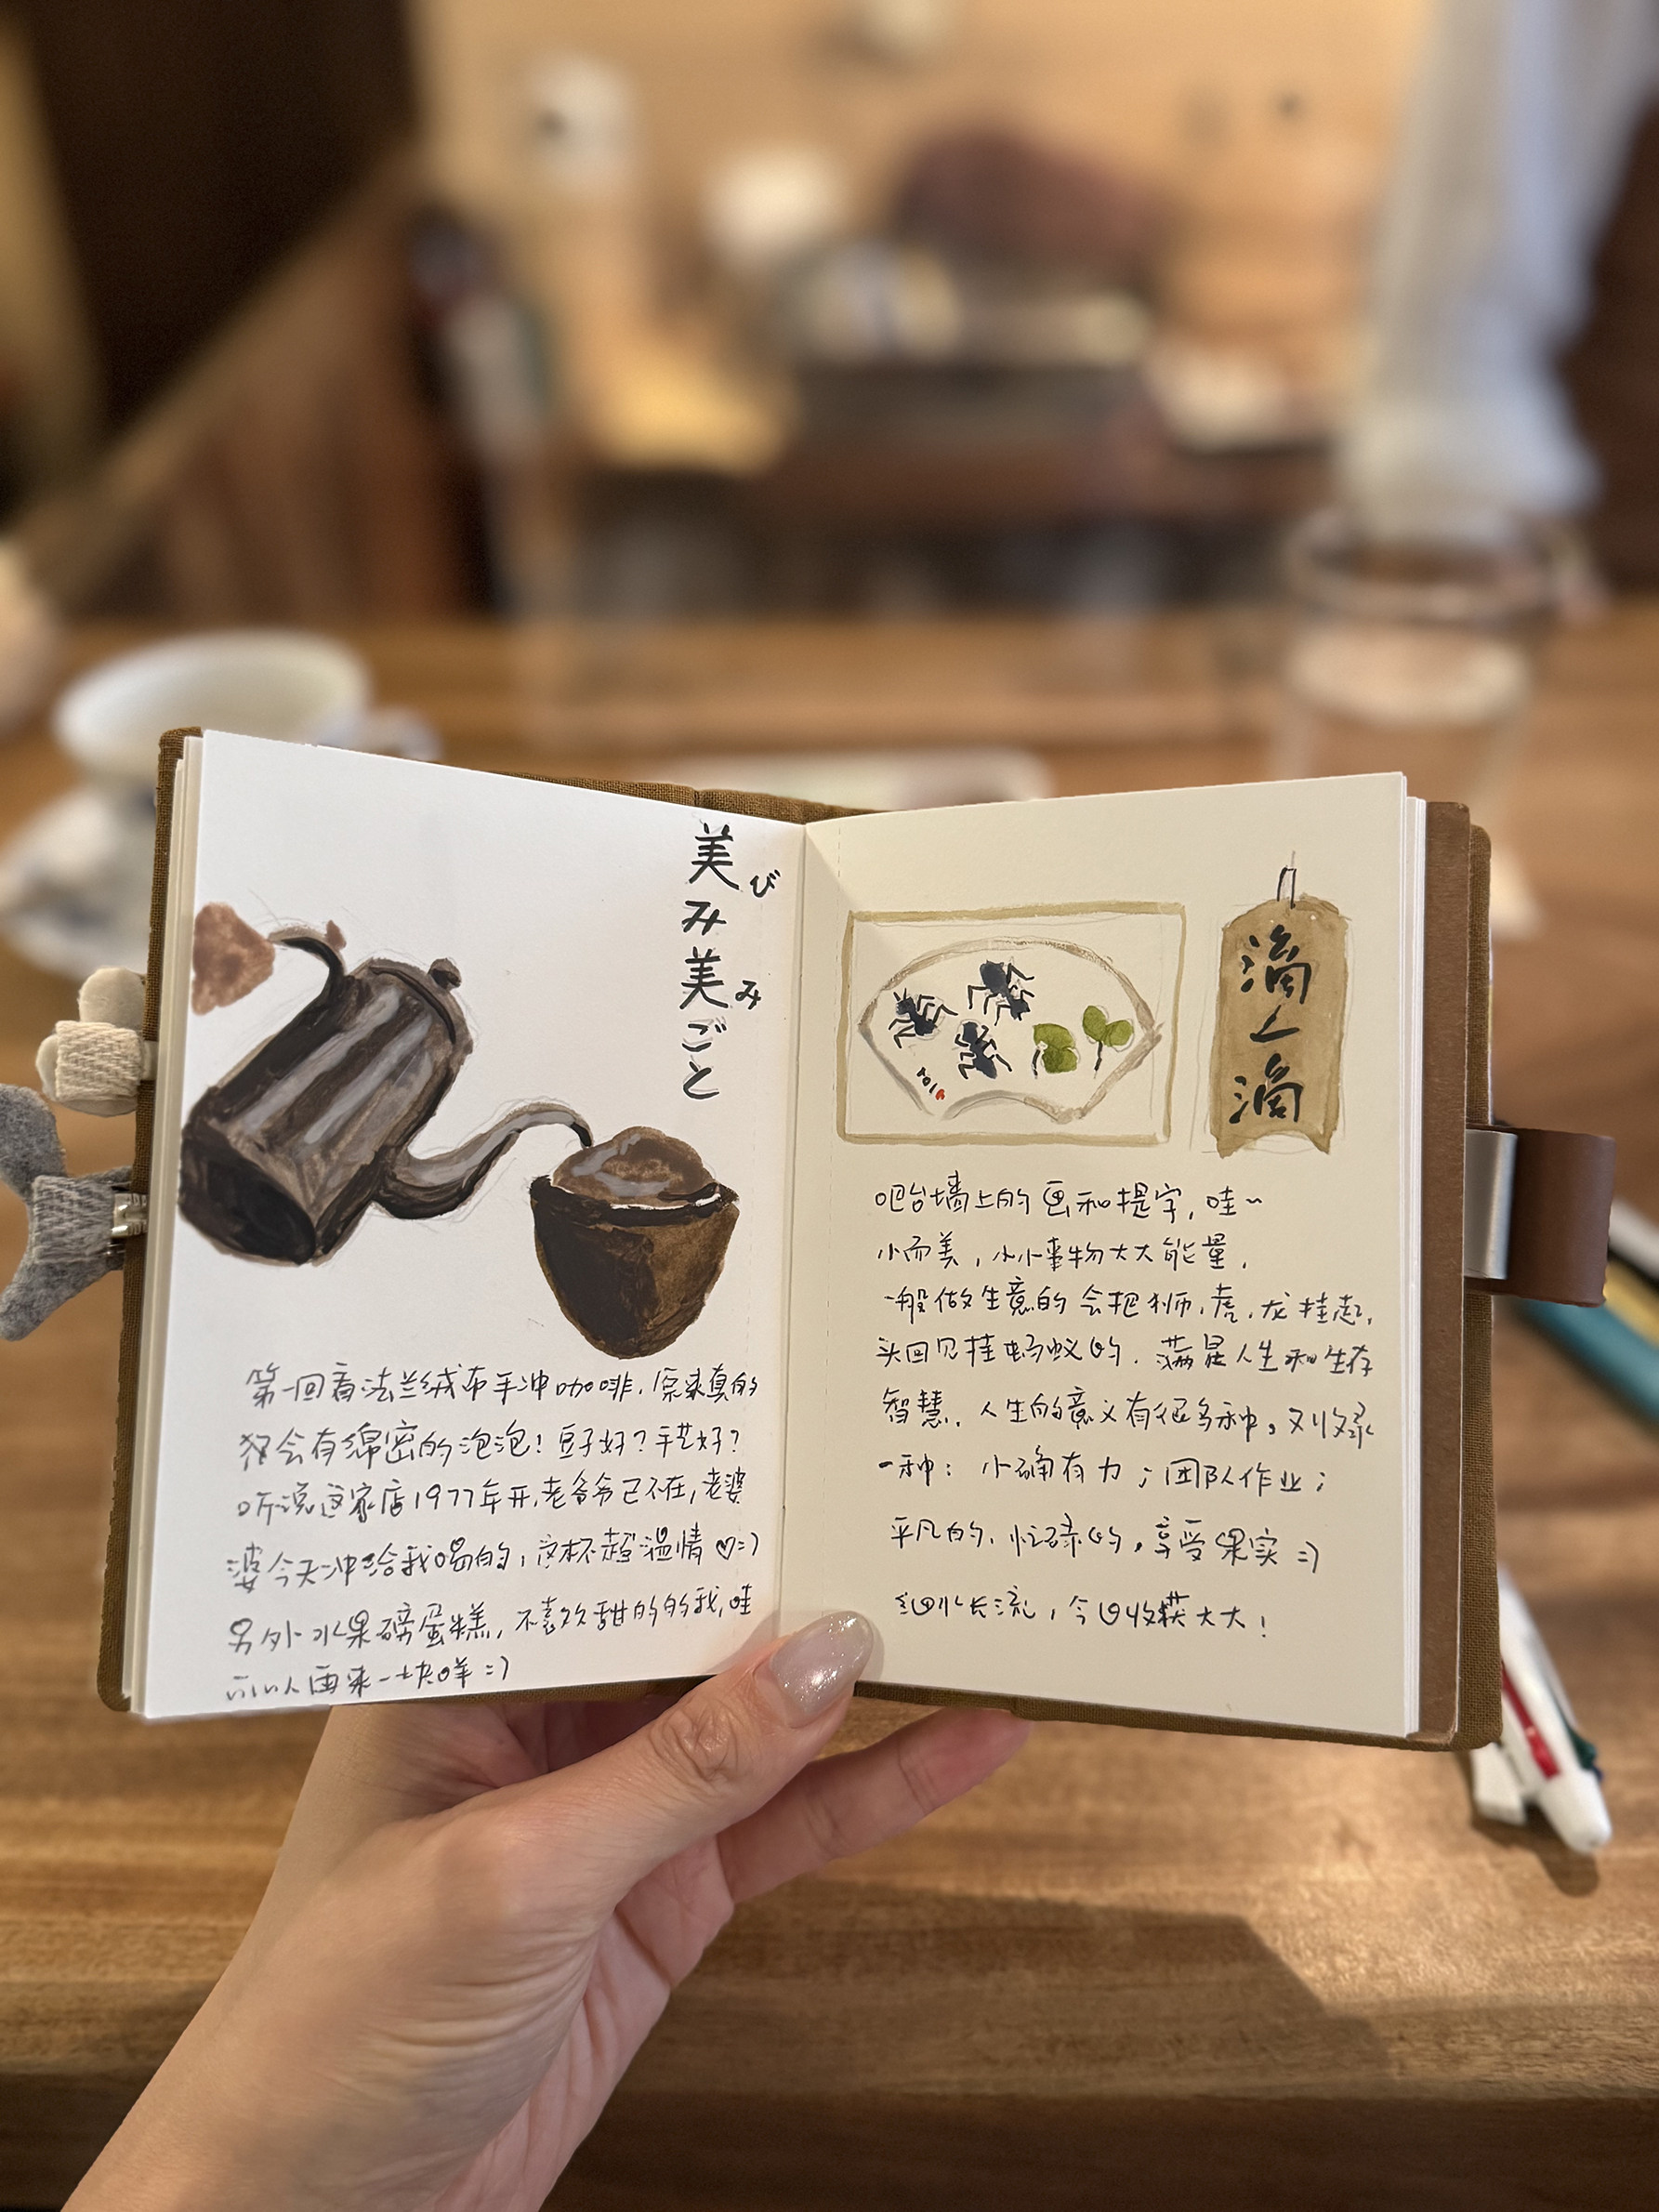 美び
み
美み
ごと
第一回看法兰绒布手冲咖啡，原来真的
会有绵密的泡泡！豆子好？手艺好？
听说这家店1977年开，老爷爷已不在，老婆
婆今天冲给我喝的，这杯超温情♡=)
另外水果磅蛋糕，不喜欢甜的的我，哇
再来一块咩=)
滴
滴
吧台墙上的画和提字，哇~
小而美，小小事物大大能量，
一般做生意的会把狮，虎，龙挂起，
头回见挂蚂蚁的，满是人生和生存
智慧，人生的意义有很多种。又收录
一种：小确有力；团队作业；
平凡的，忙碌的，享受果实=)
细水长流，今日收获大大！